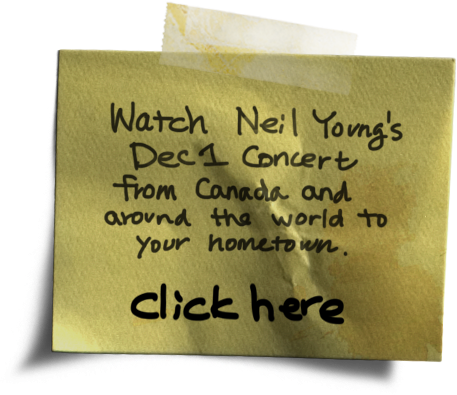 Watch Neil Young's
Dec 1 Concert
from Canada and
around the world to
your hometown.
click here